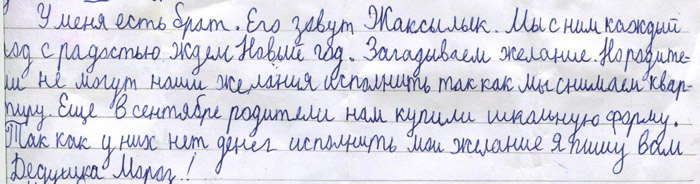 У меня есть брат. Его зовут Жаксылык. Мы с ним каждый
год с радостью ждем Новый год. Загадываем желание. Но родите-
ли не могут наши желания исполнить так как мы снимаем квар-
тиру. Еще в сентябре родители нам купили школьную форму.
Так как у них нет денег исполнить мои желание я пишу вам
Дедушка Мороз!